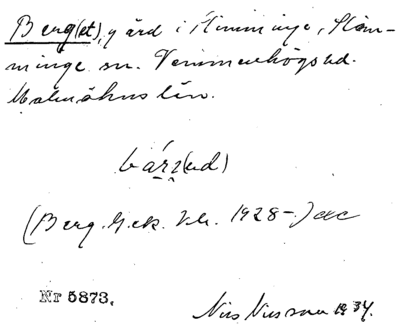 Berg(et), gård i Stimminge, Stäm-
minge sn. Vemmenhögs hd.
Malmöhus län.
bárz(ed)
(Berg. G.ek. Vh. 1928-) acc
Nr 5873.
Nils Nilsson 1934.